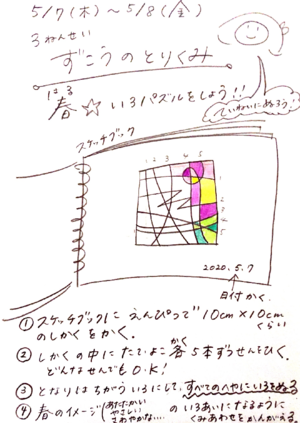 5/7(木)～5/8(金)
3ねんせい
ずこうのとりくみ
はる
春☆いろパズルをしよう!!
ていねいにぬろう!
スケッチブック
1 2 3 4 5
1
5
2020.5.7
日付かく。
①スケッチブックにえんぴつで"10cm×10cm
くらい
のしかくをかく。
②しかくの中にたてよこ各5本ずつせんをひく。
かく
どんなせんでもO.K!
③となりはちがういろにして、すべてのへやにいろをぬる
④春のイメージ(あたたかい
やさしい
さわやかな....
のいろあいになるように
くみあわせをかんがえる。